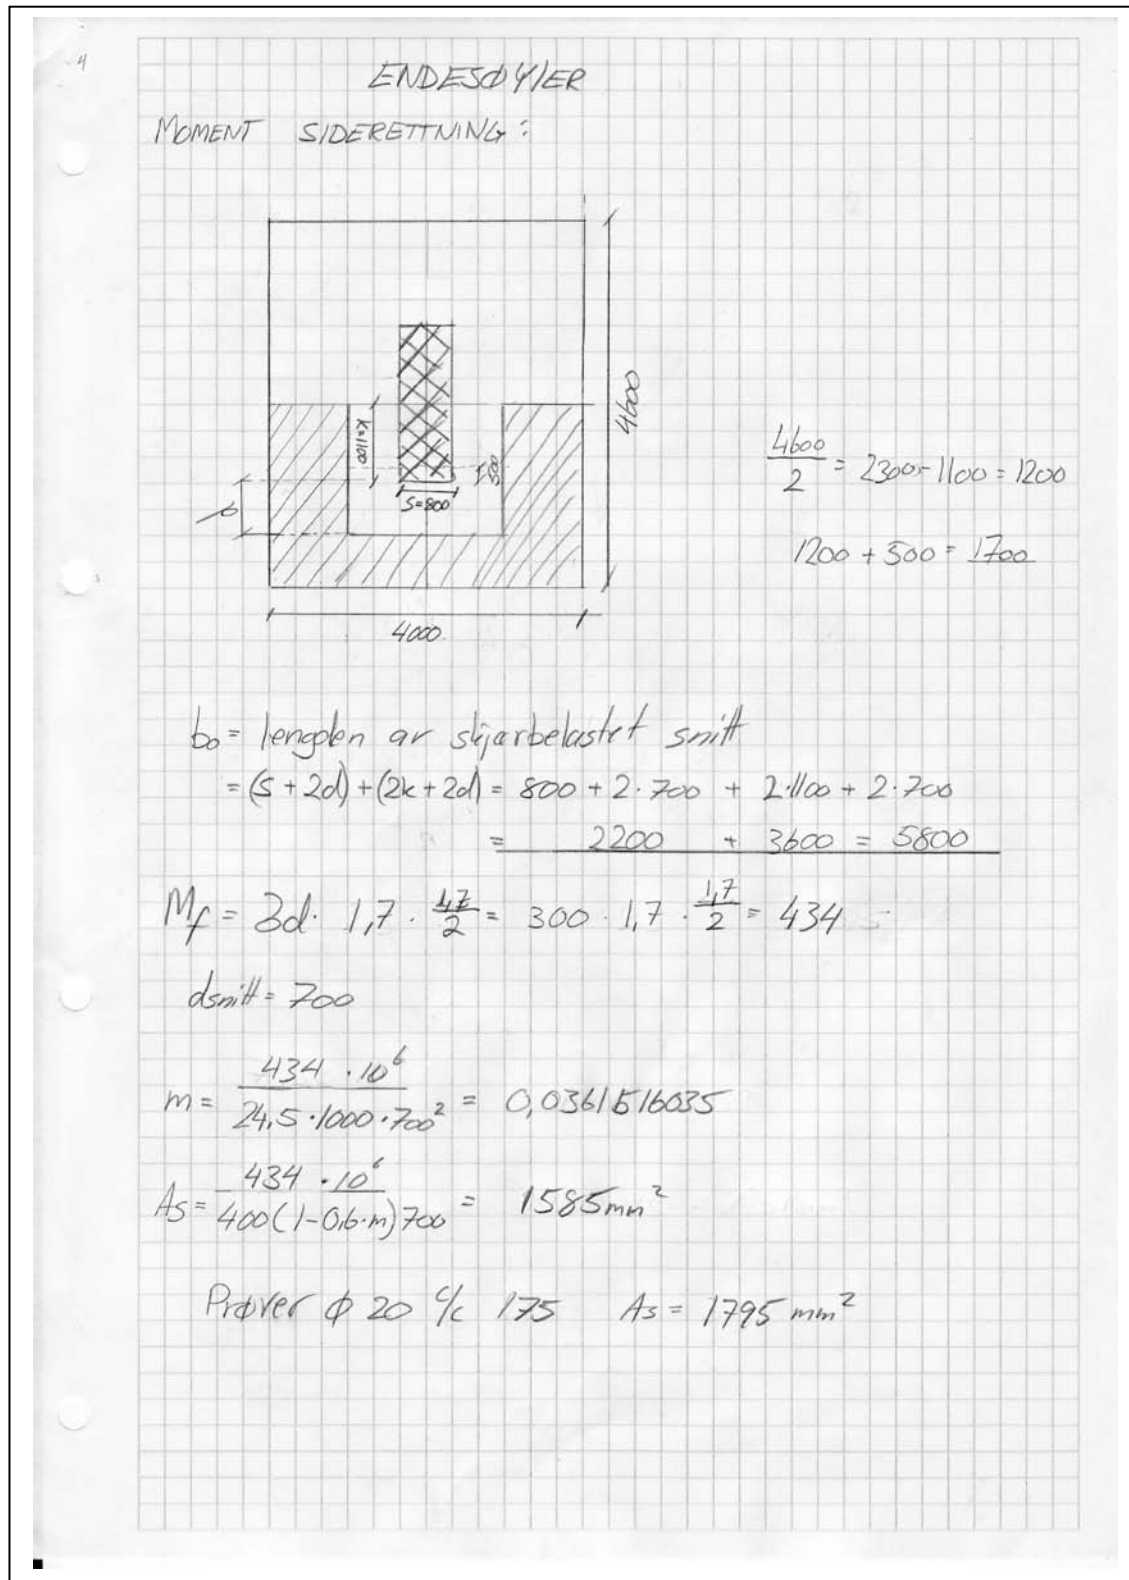 4
ENDESØYLER
MOMENT SIDERETTNING:
4600
K=1100
500
S=800
b
4000
4600/2 = 2300-1100 = 1200
1200 + 500 = 1700
b₀ = lengden av skjærbelastet snitt
= (S + 2d) + (2k + 2d) = 800 + 2·700 + 2·1100 + 2·700
= 2200 + 3600 = 5800
Mf = 3d· 1,7 · 1,7/2 = 300 · 1,7 · 1,7/2 = 434
dsnitt = 700
m = 434 · 10⁶ / 24,5 · 1000 · 700² = 0,0361516035
As = 434 · 10⁶ / 400(1-0,6·m)700 = 1585mm²
Prøver φ 20 c/c 175 As = 1795 mm²